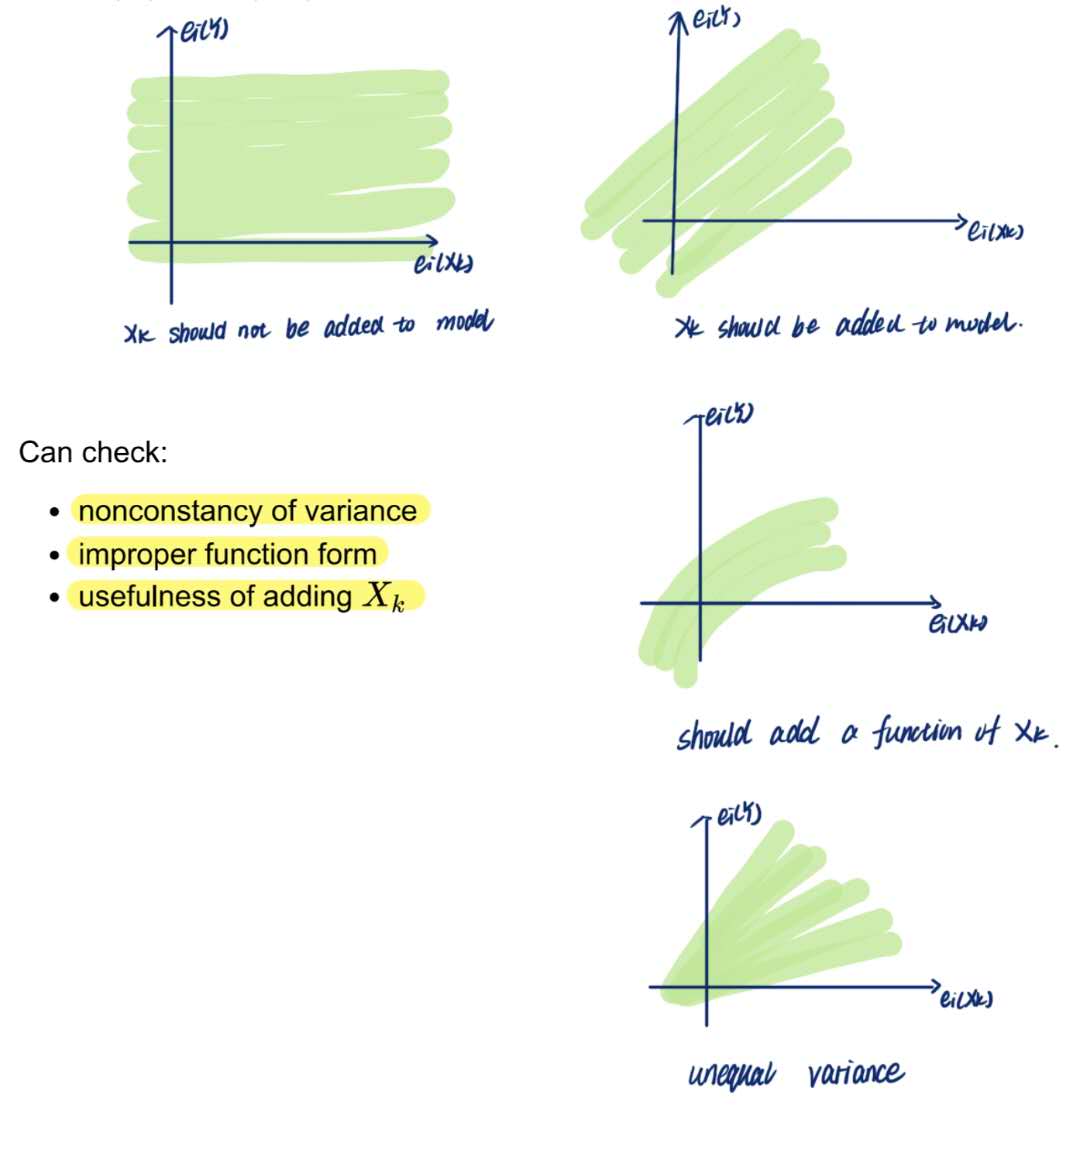 ei(Y)
ei(Xk)
Xk should not be added to model
ei(Y)
ei(Xk)
Xk should be added to model.
Can check:
• nonconstancy of variance
• improper function form
• usefulness of adding Xₖ
ei(Y)
ei(Xk)
should add a function of Xk.
ei(Y)
ei(Xk)
unequal variance